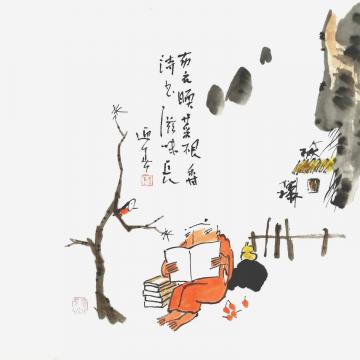 布衣暖菜根香
诗书滋味长